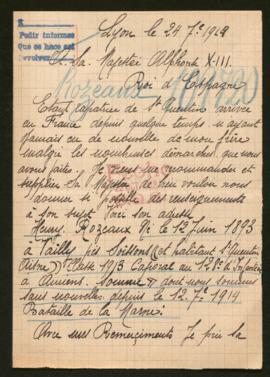 Pedir informes
Que se hace así
Lyon le 24 7e 1918
A Sa Majestée Alphonse XIII.
Roi d'Espagne
Rozeaux
Etant rapatriée de St Quentin arrivée
en France depuis quelque temps n'ayant
jamais eu de nouvelle de mon frère
malgré les nombreuses démarches que nous
avons faites. Je viens me recommander et
supplier Sa Majestée de bien vouloir nous
donner si possible des renseignements
à son sujet. Voici son adresse
Henry Rozeaux Né le 12 Juin 1893
à Tailly près Soissons (et habitant St Quentin
Aisne) Classe 1913 Caporal au 128e d'Infanterie
à Amiens. Somme) dont nous sommes
sans nouvelles depuis le 12. 7e 1914
Bataille de la Marne.
Avec mes Remerciments Je prie Sa